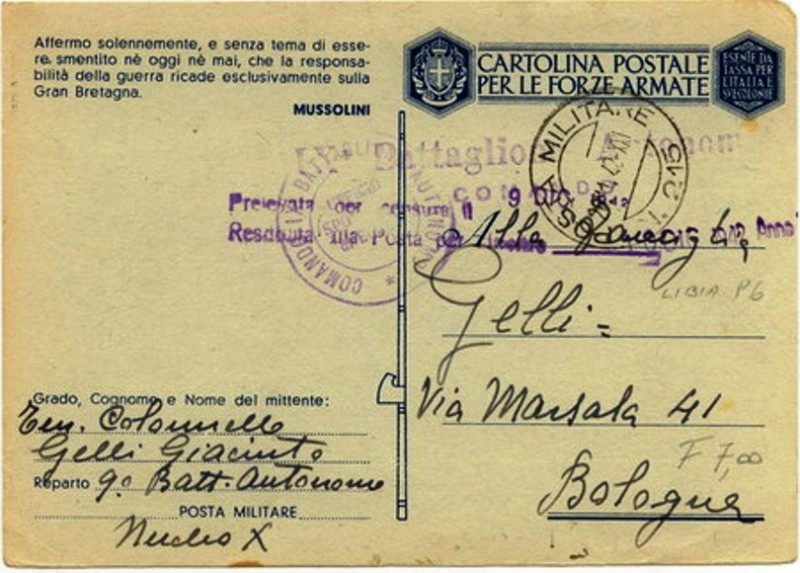 Affermo solennemente, e senza tema di esse-
re smentito nè oggi nè mai, che la responsa-
bilità della guerra ricade esclusivamente sulla
Gran Bretagna.
MUSSOLINI
CARTOLINA POSTALE
PER LE FORZE ARMATE
ESENTE DA
TASSA PER
L'ITALIA E
SVE COLONIE
MILITARE
N. 215
Battaglione Autonom
COMANDO
Prelevata per censura il 9 DIC.
Resdouta alla Posta per
1942 Anno
COMANDO BATTAGLI AUTONOMO
Alla famiglia
LIBIA P6
Gelli =
Via Marsala 41
F 7,00
Bologna
Grado, Cognome e Nome del mittente:
Ten. Colonnello
Gelli Giacinto
Reparto 9° Batt. Autonomo
POSTA MILITARE
Nucleo X